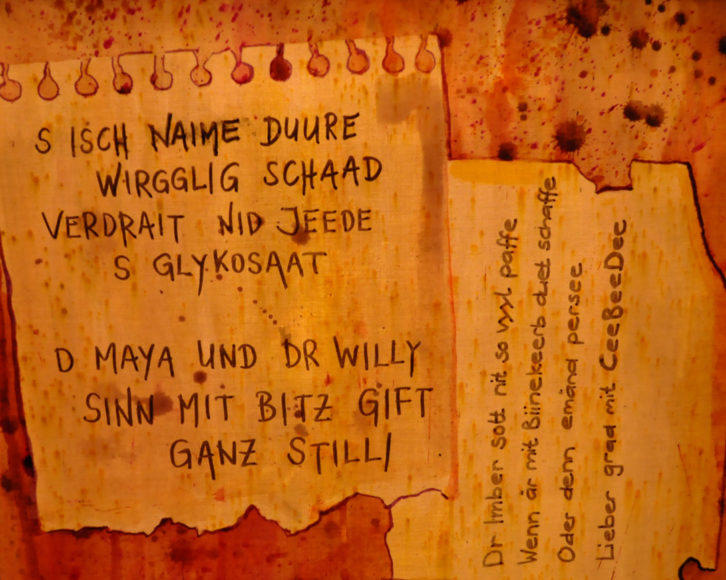 S ISCH NAIME DUURE
WIRGGLIG SCHAAD
VERDRAIT NID JEEDE
S GLYKOSAAT
D MAYA UND DR WILLY
SINN MIT BITZ GIFT
GANZ STILLI
Dr Imber sott nit so vyyl paffe
Wenn är mit Biinekeerb duet schaffe
Oder denn emänd persee
Lieber grad mit CeeBeeDee